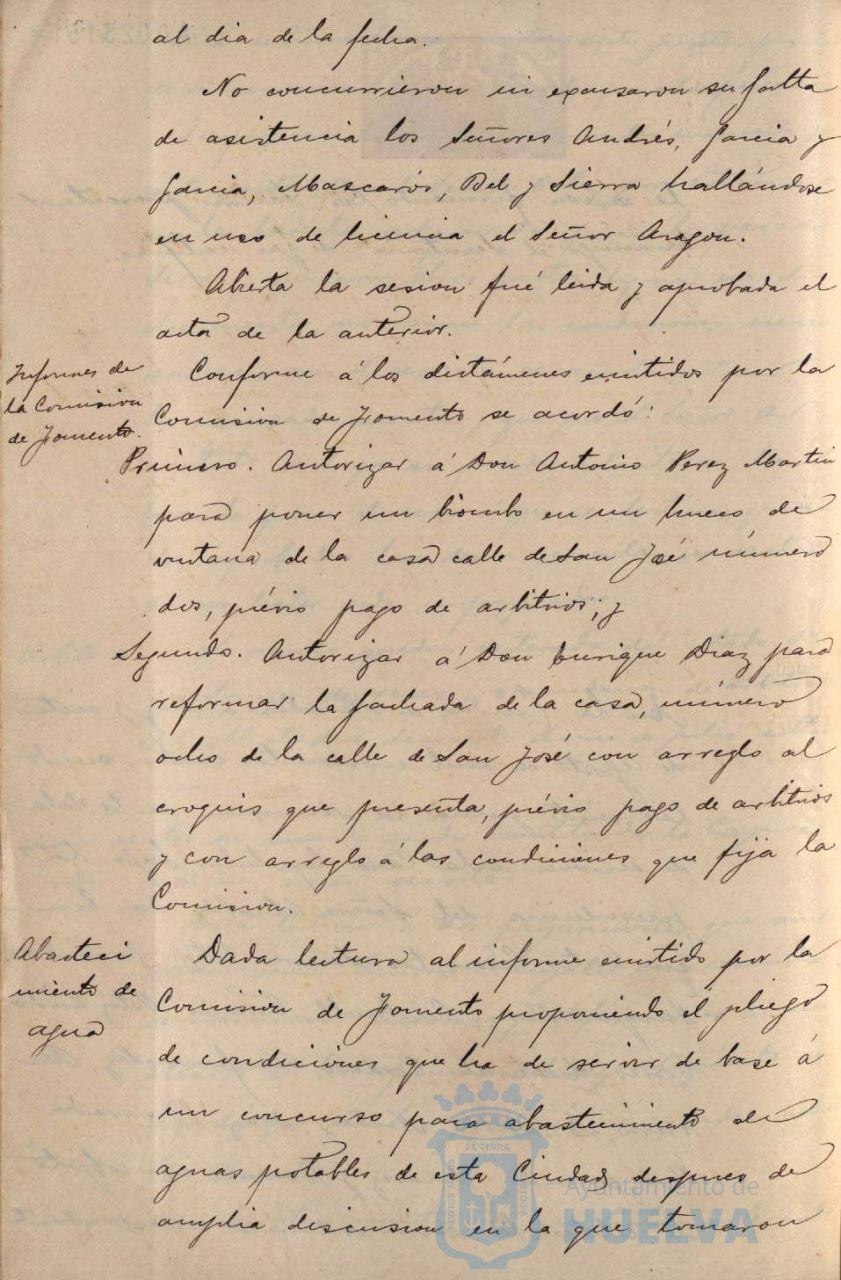 al dia de la fecha.
No concurrieron ni excusaron su falta
de asistencia los Señores Andrés, Garcia y
Garcia, Mascarós, Del y Sierra hallándose
en uso de licencia el Señor Aragon.
Abierta la sesion fué leida y aprobada el
acta de la anterior.
Informes de
la Comision
de Fomento.
Conforme á los dictámenes emitidos por la
Comision de Fomento se acordó:
Primero. Autorizar á Don Antonio Perez Martin
para poner un biombo en un hueco de
ventana de la casa calle de San José número
dos, prévio pago de arbitrios; y
Segundo. Autorizar á Don Enrique Diaz para
reformar la fachada de la casa, número
ocho de la calle de San José con arreglo al
croquis que presenta, prévio pago de arbitrios
y con arreglo á las condiciones que fija la
Comision.
Abasteci
miento de
agua
Dada lectura al informe emitido por la
Comision de Fomento proponiendo el pliego
de condiciones que ha de servir de base á
un concurso para abastecimiento de
aguas potables de esta Ciudad, despues de
amplia discusion en la que tomaron
Ayuntamiento de
HUELVA